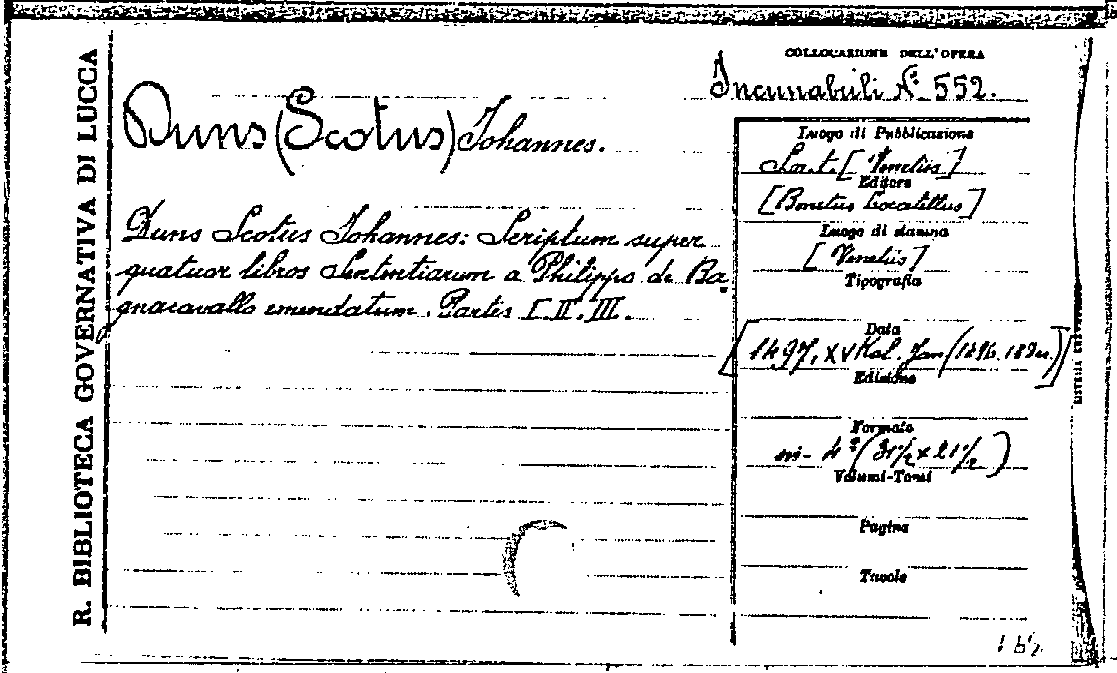 R. BIBLIOTECA GOVERNATIVA DI LUCCA
COLLOCAZIONE DELL'OPERA
Incunabuli N.° 552.
Duns (Scotus) Johannes.
Duns Scotus Johannes: Scriptum super
quatuor libros Sententiarum a Philippo de Ba
gnacavallo emendatum. Partes I. II. III.
Luogo di Pubblicazione
S. a. t. [Venetiis]
Editore
[Bonetus Locatellus]
Luogo di stampa
[Venetiis]
Tipografia
Data
[1497, XV Kal. Jan (1496. 18 Dic.)]
Edizione
Formato
in- 4° (31½ x 21½)
Volumi-Tomi
Pagine
Tavole